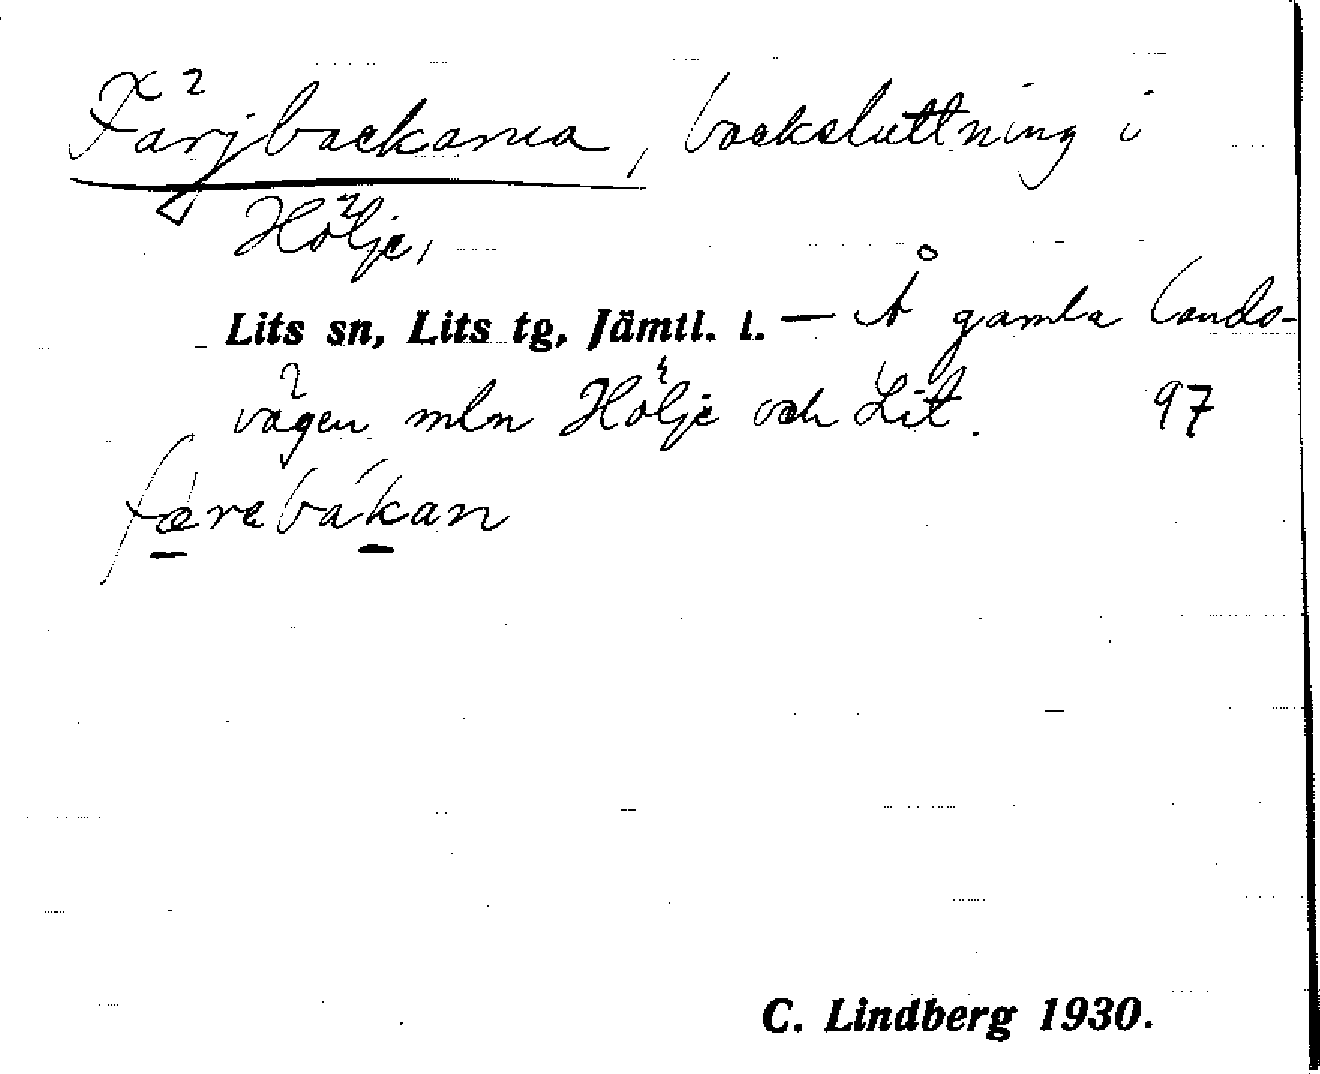 Färjbackarna, backsluttning i
Hölje,
Lits sn, Lits tg, Jämtl. l. — Å gamla lands-
vägen mln Hölje och Lit. 97
færebákan
C. Lindberg 1930.